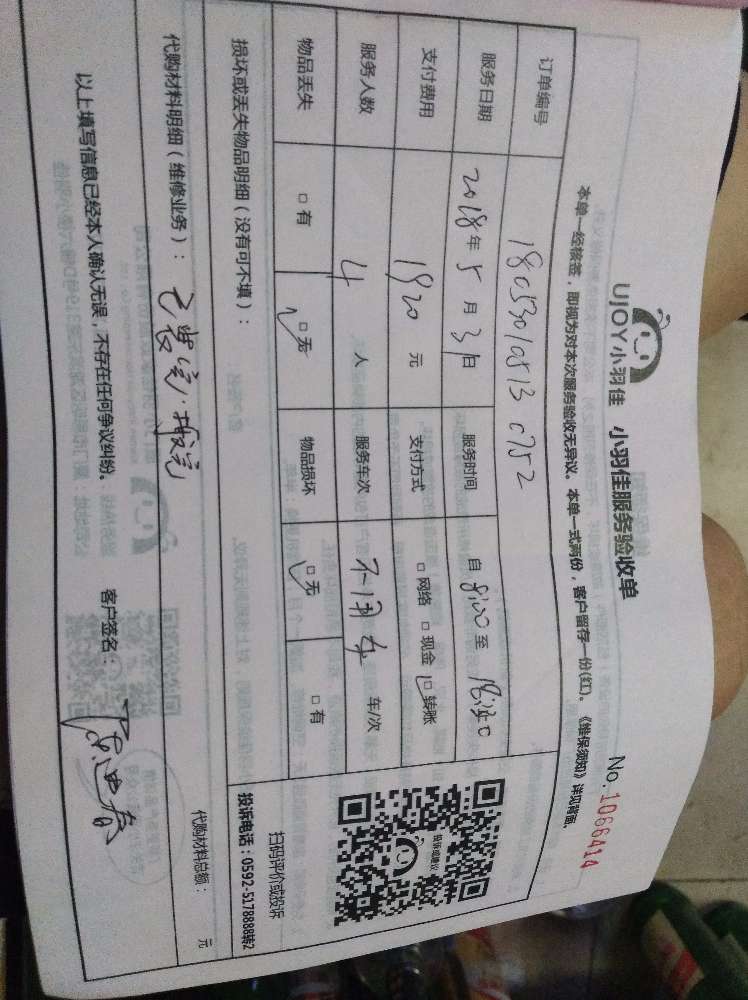 UJOY小羽佳 小羽佳服务验收单 No.1066414
本单一经核签，即视为对本次服务验收无异议。本单一式两份，客户留存一份(红)。《维保须知》详见背面.
订单编号 1805301
服务日期 2018年5月31日 服务时间 自 8:00 至
支付费用 1920 元 支付方式 □网络 □现金 □转账
服务人数 4 人 服务车次 车/次
物品丢失 □有 □无 物品损坏 □无 □有
损坏或丢失物品明细（没有可不填）：
扫码评价或投诉
投诉电话：0592-5178888转2
代购材料明细（维修业务）： 代购材料总额： 元
以上填写信息已经本人确认无误，不存在任何争议纠纷。 客户签名：
投诉或建议